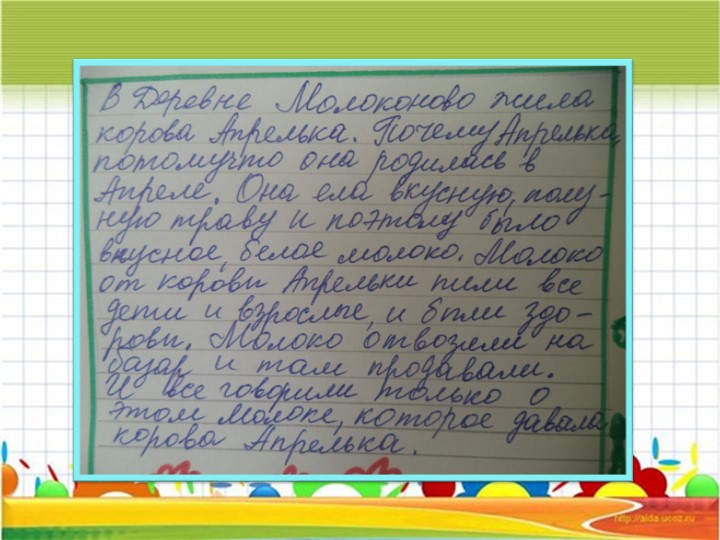 В Деревне Молоконово жила
корова Апрелька. Почему Апрелька,
потомучто она родилась в
Апреле. Она ела вкусную, полу-
ную траву и поэтому было
вкусное, белое молоко. Молоко
от коровы Апрельки пили все
дети и взрослые, и были здо-
ровы. Молоко отвозили на
базар и там продавали.
И все говорили только о
этом молоке, которое давала
корова Апрелька.
http://aida.ucoz.ru